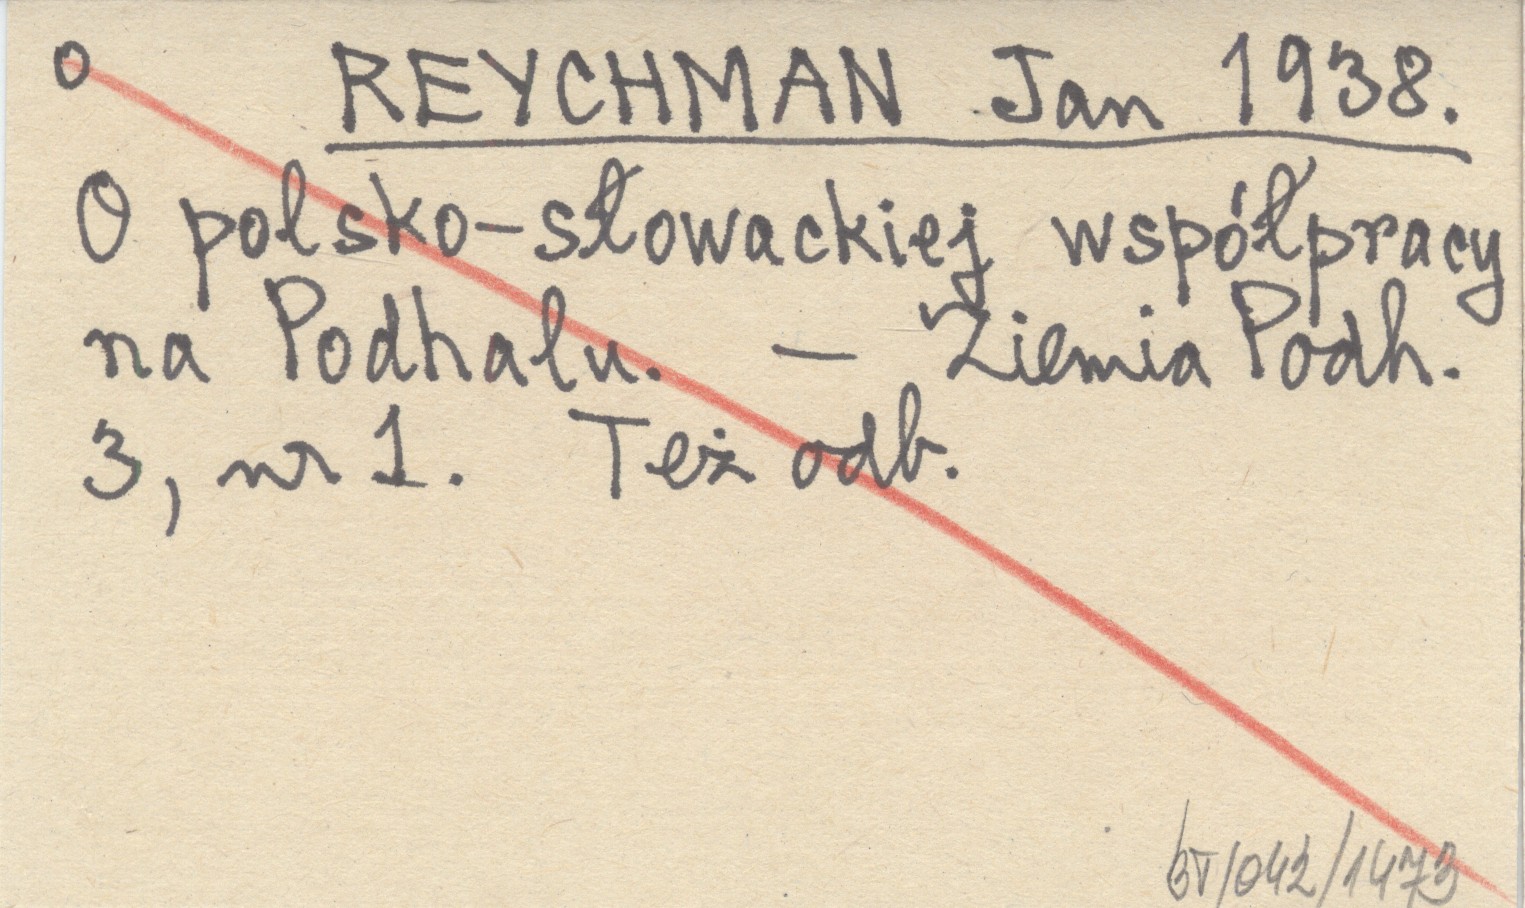 o REYCHMAN Jan 1938.
O polsko-słowackiej współpracy
na Podhalu. — Ziemia Podh.
3, nr 1. Też odb.
/042/1473